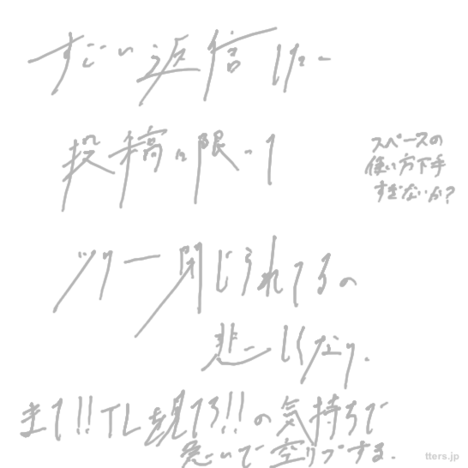 すごい返信したー
投稿に限って
スペースの
使い方下手
すぎないか?
ツリー閉じられてるの
悲しくなり、
まて!!TL見てろ!!の気持ちで
急いで空リプする。
tters.jp